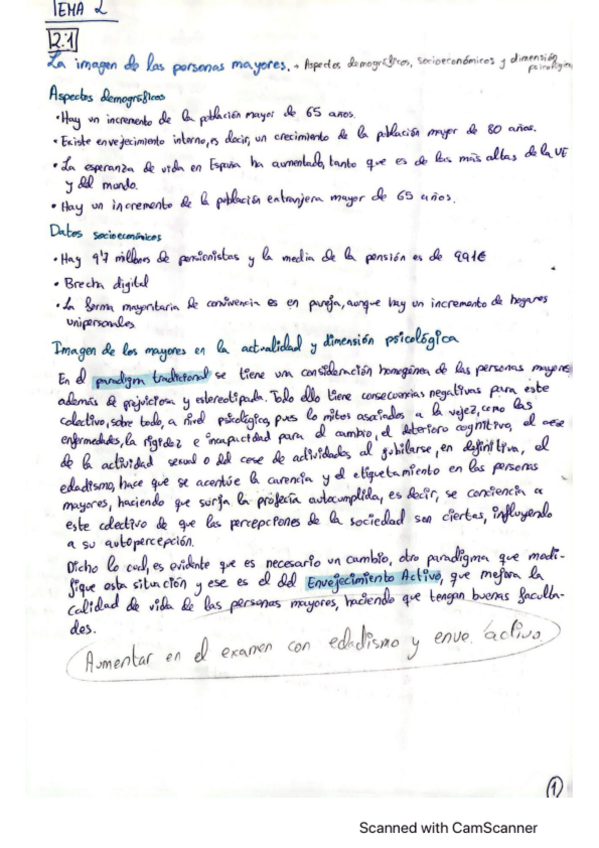 TEMA 2
2.1
La imagen de las personas mayores. → Aspectos demográficos, socioeconómicos y dimensión
psicológica
Aspectos demográficos
• Hay un incremento de la población mayor de 65 años.
• Existe envejecimiento interno, es decir, un crecimiento de la población mayor de 80 años.
• La esperanza de vida en España ha aumentado, tanto que es de las más altas de la UE
y del mundo.
• Hay un incremento de la población extranjera mayor de 65 años.
Datos socioeconómicos
• Hay 9'7 millones de pensionistas y la media de la pensión es de 991€
• Brecha digital
• La forma mayoritaria de convivencia es en pareja, aunque hay un incremento de hogares
unipersonales
Imagen de los mayores en la actualidad y dimensión psicológica
En el paradigma tradicional se tiene una consideración homogénea de las personas mayores
además de prejuiciosa y estereotipada. Todo ello tiene consecuencias negativas para este
colectivo, sobre todo, a nivel psicológico, pues los mitos asociados a la vejez, como las
enfermedades, la rigidez e incapacidad para el cambio, el deterioro cognitivo, el cese
de la actividad sexual o del cese de actividades al jubilarse, en definitiva, el
edadismo, hace que se acentúe la carencia y el etiquetamiento en las personas
mayores, haciendo que surja la profecía autocumplida, es decir, se conciencia a
este colectivo de que las percepciones de la sociedad son ciertas, influyendo
a su autopercepción.
Dicho lo cual, es evidente que es necesario un cambio, otro paradigma que modi-
fique esta situación y ese es el del Envejecimiento Activo, que mejora la
calidad de vida de las personas mayores, haciendo que tengan buenas faculta-
des.
Aumentar en el examen con edadismo y enve. activo
1
Scanned with CamScanner